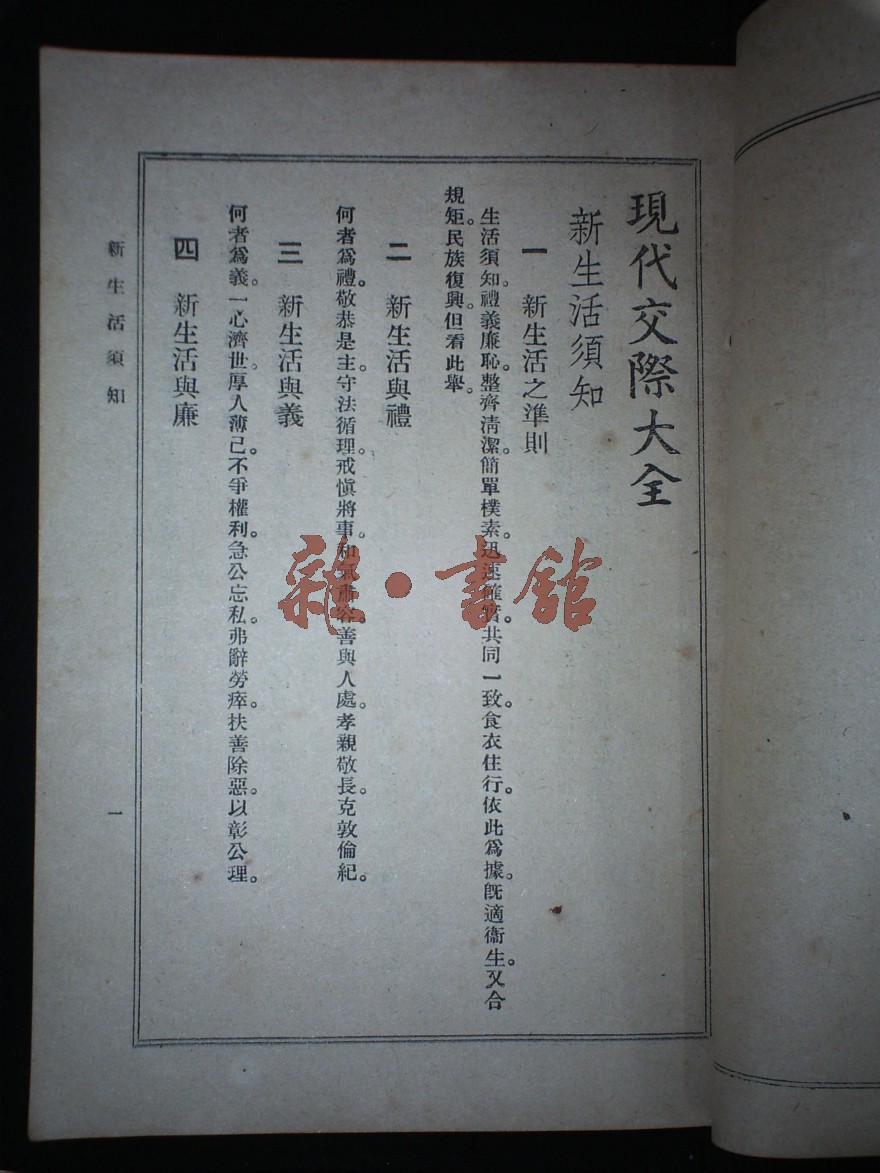 現代交際大全
新生活須知
一　新生活之準則
生活須知。禮義廉恥。整齊清潔。簡單樸素。迅速確實。共同一致。食衣住行。依此爲據。旣適衞生。又合
規矩。民族復興。但看此舉。
二　新生活與禮
何者爲禮。敬恭是主。守法循理。戒愼將事。和氣肅容。善與人處。孝親敬長。克敦倫紀。
三　新生活與義
何者爲義。一心濟世。厚人薄己。不爭權利。急公忘私。弗辭勞瘁。扶善除惡。以彰公理。
四　新生活與廉
新生活須知
一
雜·書館